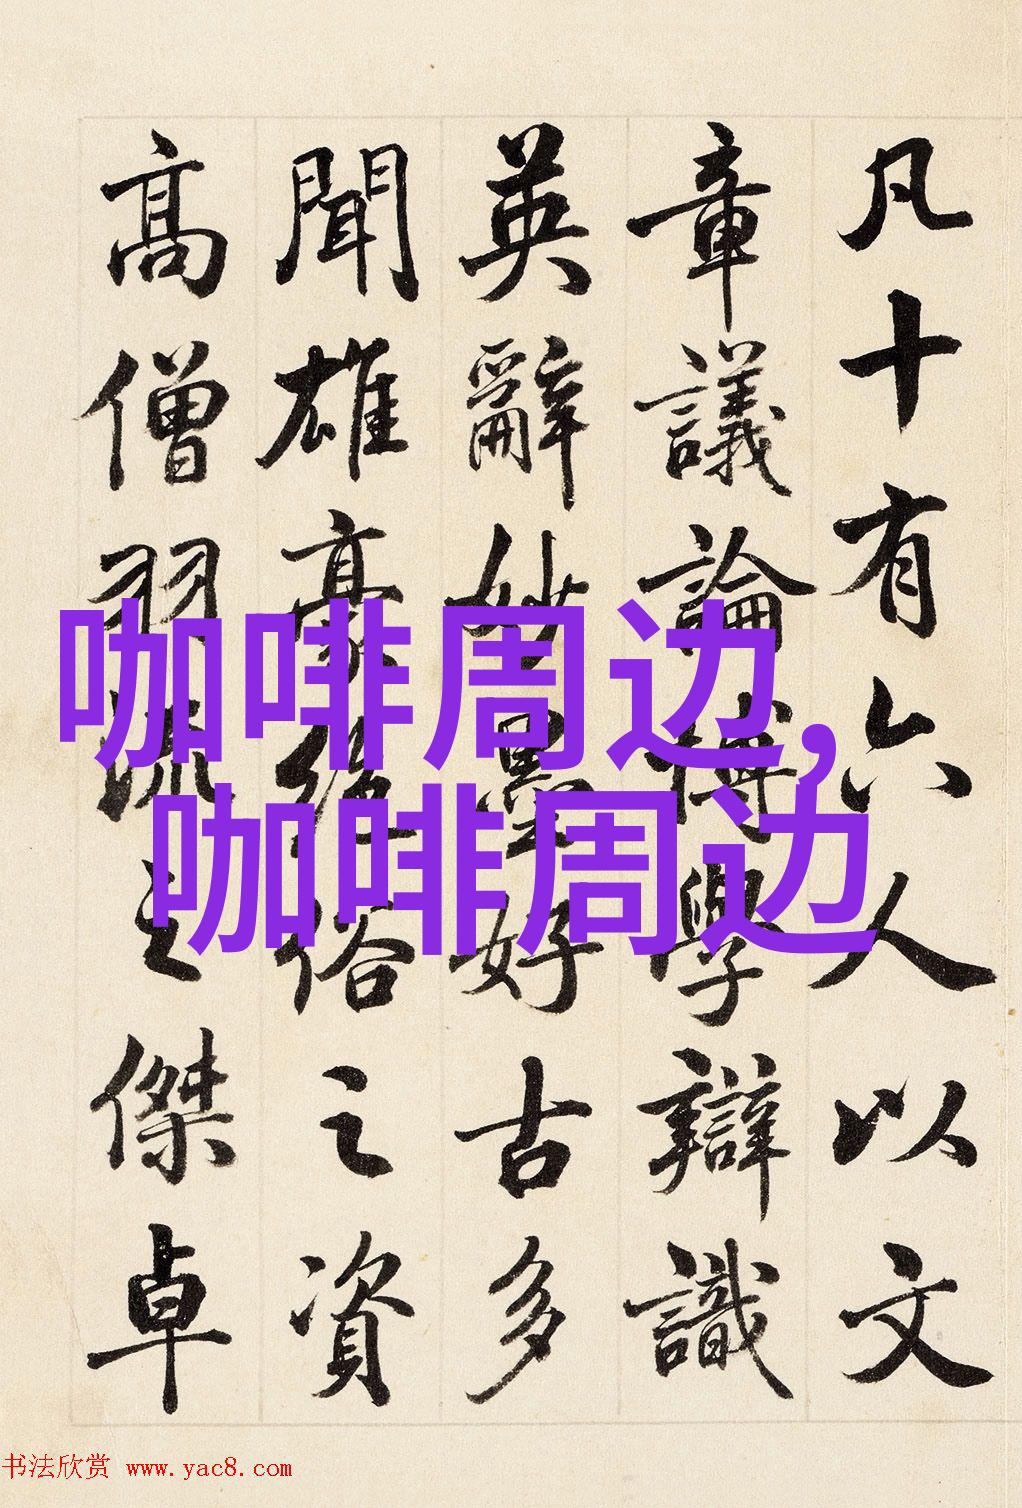 凡十有六人以文
章議論博學辯識
英辭妙墨好古多
聞雄豪絕俗之資
高僧羽流之傑卓
咖啡周边,
咖啡周边
书法欣赏 www.yac8.com